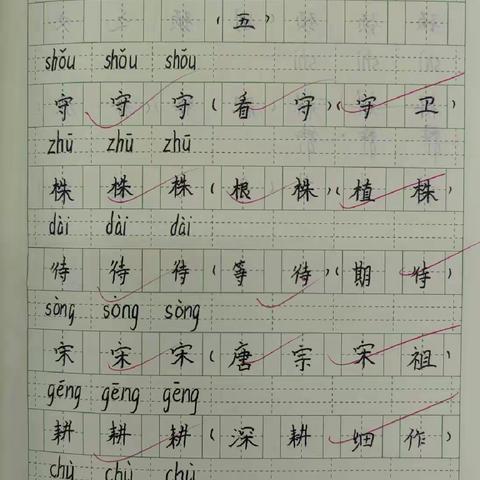 (五)
shǒu shǒu shǒu
守 守 守(看 守)(守 卫)
zhū zhū zhū
株 株 株(根 株)(植 株)
dài dài dài
待 待 待(等 待)(期 待)
sòng sòng sòng
宋 宋 宋(唐 宗 宋 祖)
gēng gēng gēng
耕 耕 耕(深 耕 细 作)
chù chù chù